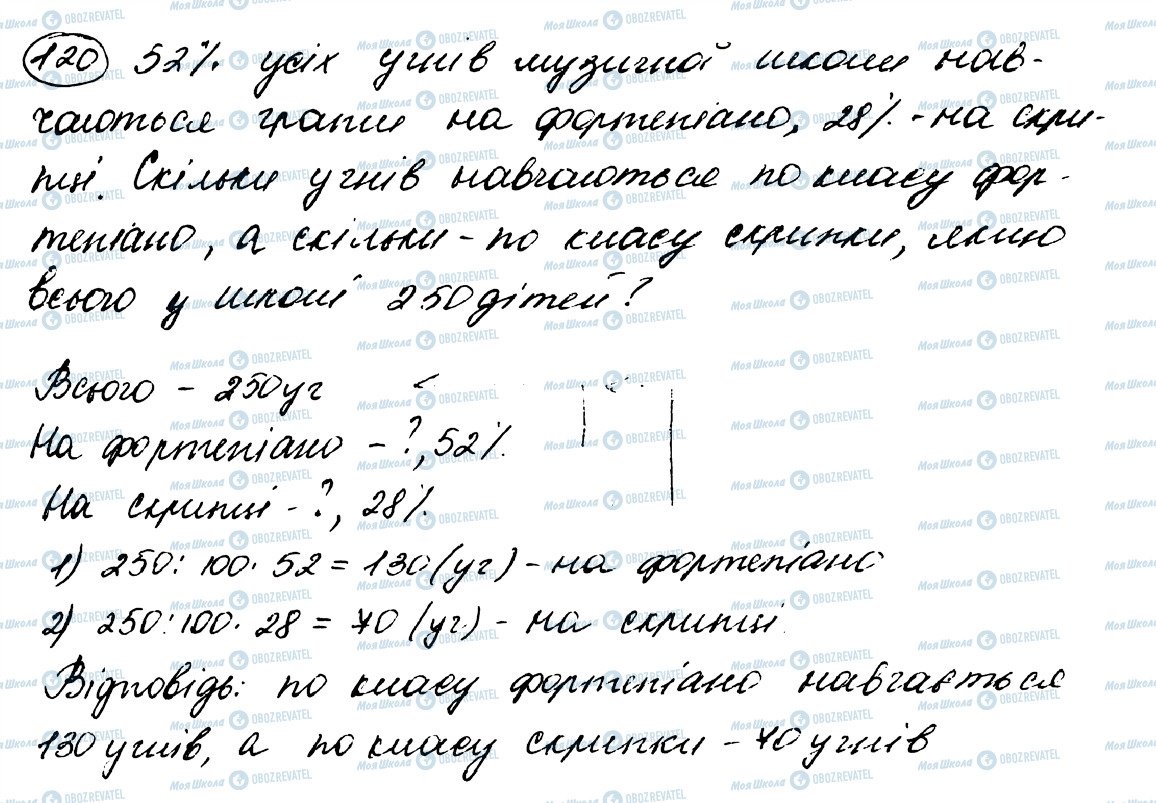 120 52% усіх учнів музичної школи нав-
чаються грати на фортепіано, 28% - на скри-
пці. Скільки учнів навчаються по класу фор-
тепіано, а скільки - по класу скрипки, якщо
всього у школі 250 дітей?
Всього - 250 уч
На фортепіано - ?, 52%.
На скрипці - ?, 28%.
1) 250 : 100 · 52 = 130 (уч) - на фортепіано
2) 250 : 100 · 28 = 70 (уч) - на скрипці.
Відповідь: по класу фортепіано навчається
130 учнів, а по класу скрипки - 70 учнів
МояШкола OBOZREVATEL